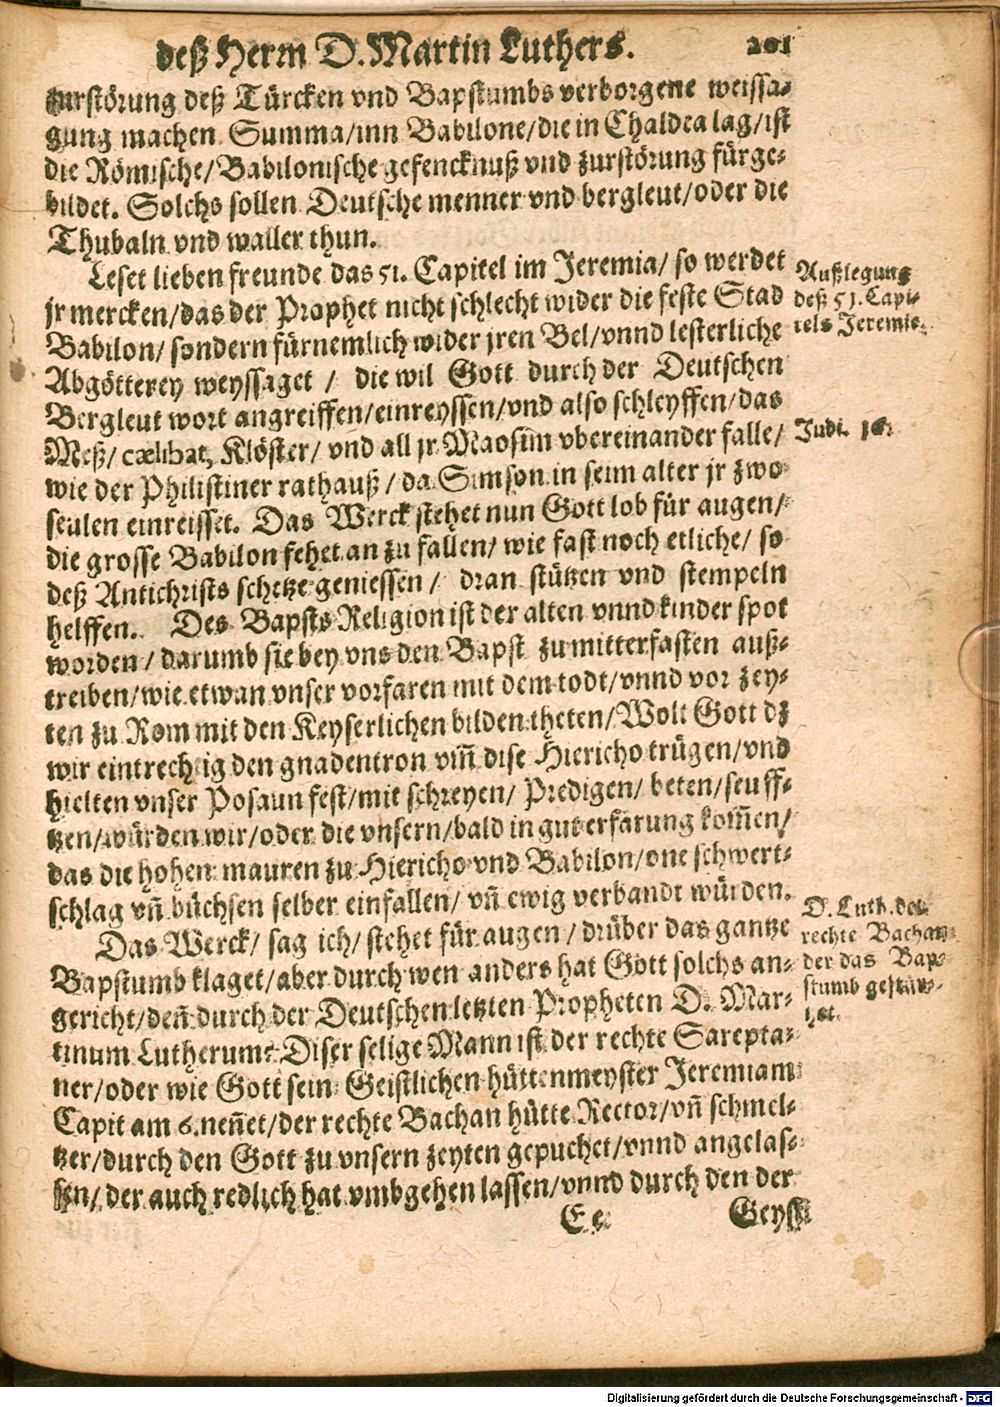 deß Herrn D. Martin Luthers. 201
zurstörung deß Türcken vnd Bapstumbs verborgene weissa-
gung machen. Summa/inn Babilone/die in Chaldea lag/ist
die Römische/Babilonische gefencknuß vnd zurstörung fürge-
bildet. Solchs sollen Deutsche menner vnd bergleut/oder die
Thubaln vnd waller thun.
Leset lieben freunde das 51. Capitel im Jeremia/ so werdet
jr mercken/das der Prophet nicht schlecht wider die feste Stad
Babilon/ sondern fürnemlich wider jren Bel/vnnd lesterliche
Abgötterey weyssaget / die wil Gott durch der Deutschen
Bergleut wort angreiffen/einreyssen/vnd also schleyffen/das
Meß/ cælibat, Klöster/ vnd all jr Maosim vbereinander falle/
wie der Philistiner rathauß / da Simson in seim alter jr zwo
seulen einreisset. Das Werck stehet nun Gott lob für augen/
die grosse Babilon fehet an zu fallen/ wie fast noch etliche/ so
deß Antichrists schetze geniessen / dran stützen vnd stempeln
helffen. Des Bapsts Religion ist der alten vnnd kinder spot
worden / darumb sie bey vns den Bapst zu mitterfasten auß-
treiben/wie etwan vnser vorfaren mit dem todt/vnnd vor zey-
ten zu Rom mit den Keyserlichen bilden theten/Wolt Gott dz
wir eintrechtig den gnadentron vm̃ dise Hiericho trügen/vnd
hielten vnser Posaun fest/mit schreyen/ Predigen/ beten/seuff-
tzen/würden wir/oder die vnsern/bald in gut erfarung kom̃en/
das die hohen mauren zu Hiericho vnd Babilon/one schwert-
schlag vñ büchsen selber einfallen/ vñ ewig verbandt würden.
Das Werck/ sag ich/ stehet für augen / drüber das gantze
Bapstumb klaget/aber durch wen anders hat Gott solchs an-
gericht/deñ durch der Deutschen letzten Propheten D. Mar-
tinum Lutherum? Diser selige Mann ist der rechte Sarepta-
ner/oder wie Gott sein Geistlichen hüttenmeyster Jeremiam
Capit am 6. neñet/der rechte Bachan hütte Rector/vñ schmel-
tzer/durch den Gott zu vnsern zeyten gepuchet/vnnd angelas-
sen/ der auch redlich hat vmbgehen lassen/vnnd durch den der
E e Geyst
Außlegung
deß 51. Capi-
tels Jeremie.
Judi. 16.
D. Luth. der
rechte Bachan
der das Bap-
stumb
hat.
Digitalisierung gefördert durch die Deutsche Forschungsgemeinschaft - DFG